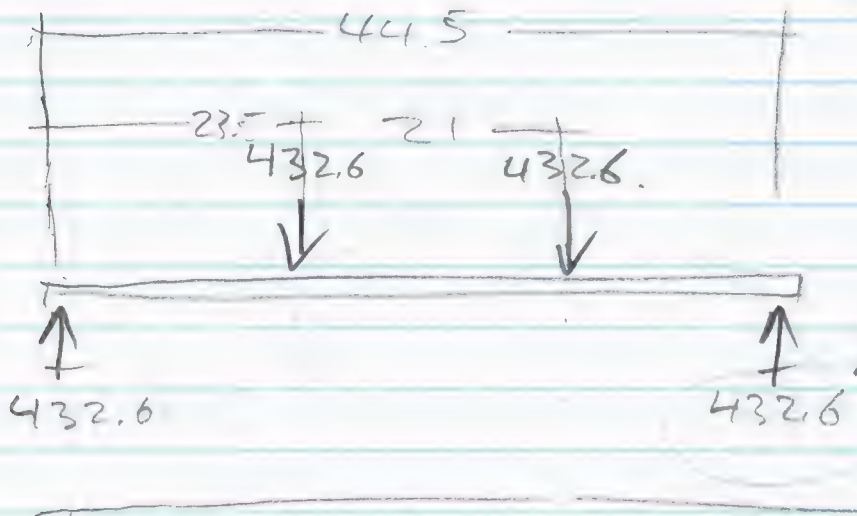 44.5
23.5 21
432.6 432.6.
432.6 432.6